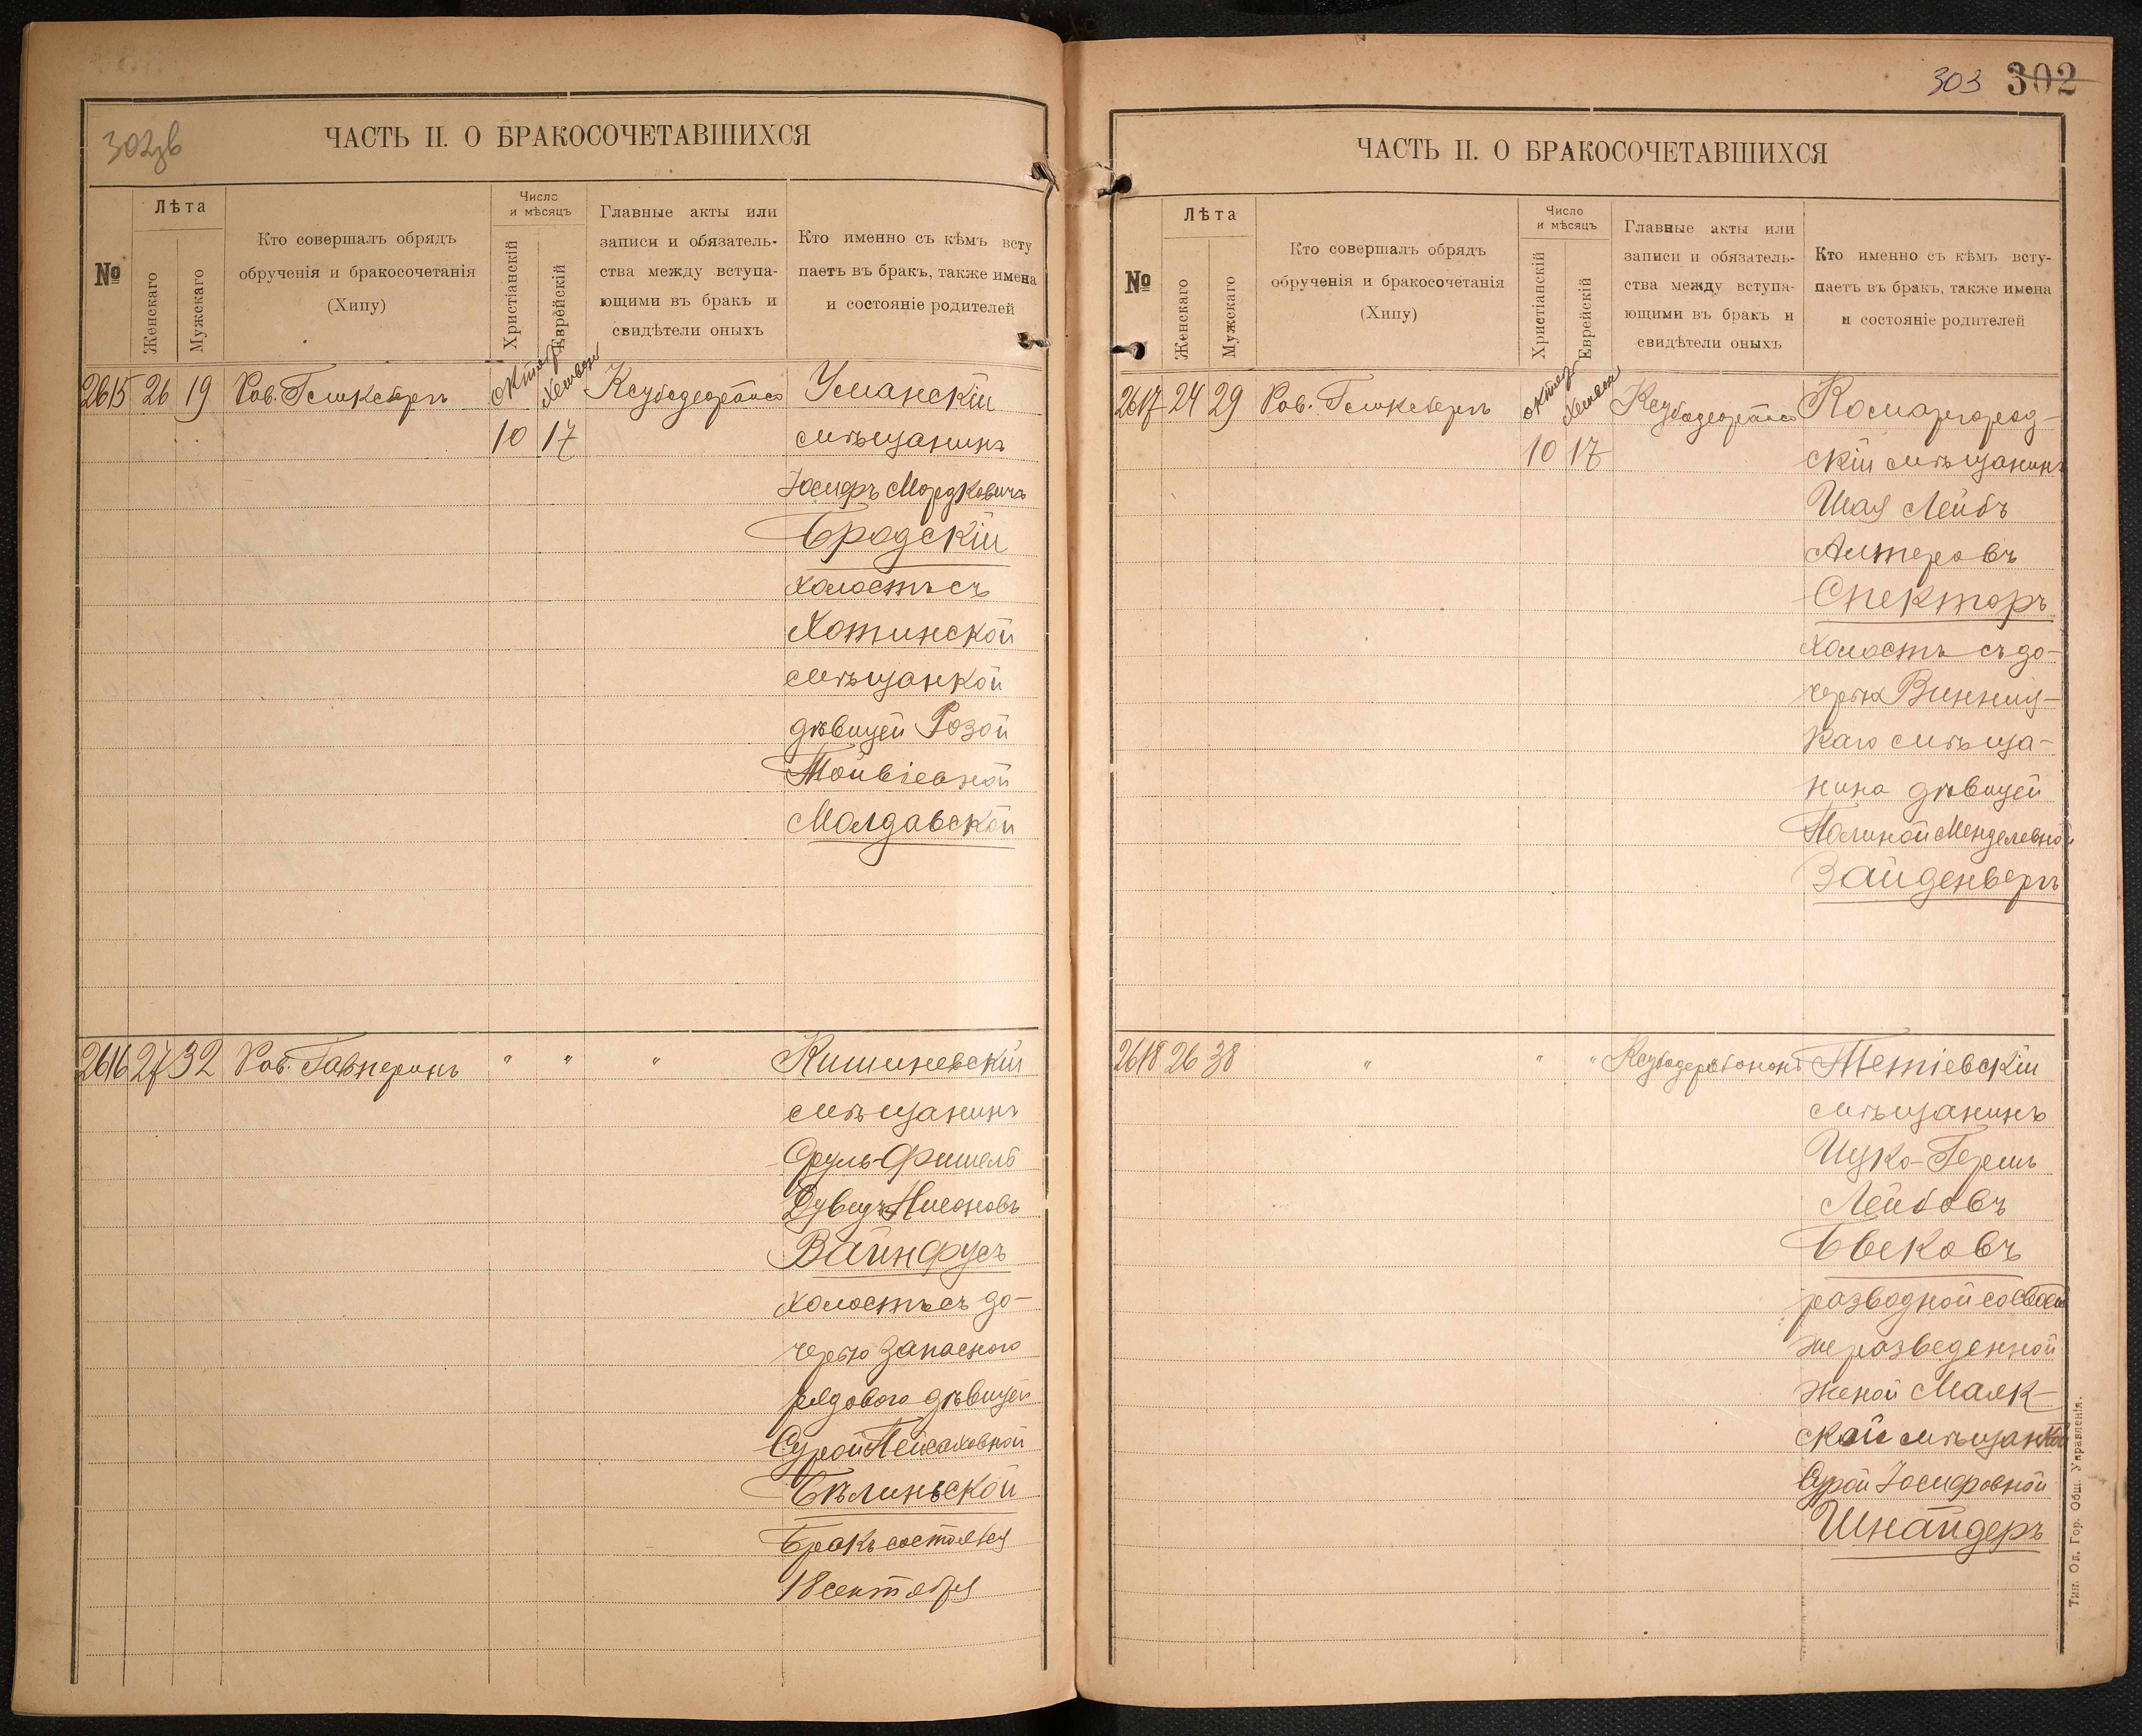 302зв
ЧАСТЬ II. О БРАКОСОЧЕТАВШИХСЯ
№
Лѣта
Женскаго
Мужскаго
Кто совершалъ обрядъ
обрученія и бракосочетанія
(Хипу)
Число
и мѣсяцъ
Христіанскій
Еврейскій
Главные акты или
записи и обязатель-
ства между вступа-
ющими въ бракъ и
свидѣтели оныхъ
Кто именно съ кѣмъ всту
паетъ въ бракъ, также имена
и состояніе родителей
2615 26 19 Рав.
10 17
Уманскій
мѣщанинъ
Іосифъ Мордковичъ
Бродскій
холостъ съ
Хотинской
мѣщанкой
дѣвицей Розой
Тойвіевной
Молдавской
2616 27 32 Рав. Гавперинъ " " "
Кишиневскій
мѣщанинъ
Сруль-Фишель
Дувидъ Нисоновъ
Вайнфусъ
холостъ съ до-
черью запасного
рядового дѣвицей
Сурой Пейсаховной
Бѣлинской
Бракъ состоялся
18 сентября
303 302
ЧАСТЬ II. О БРАКОСОЧЕТАВШИХСЯ
№
Лѣта
Женскаго
Мужскаго
Кто совершалъ обрядъ
обрученія и бракосочетанія
(Хипу)
Число
и мѣсяцъ
Христіанскій
Еврейскій
Главные акты или
записи и обязатель-
ства между вступа-
ющими въ бракъ и
свидѣтели оныхъ
Кто именно съ кѣмъ всту-
паетъ въ бракъ, также имена
и состояніе родителей
2617 24 29 Рав.
10 17
Комаргород-
скій мѣщанинъ
Шая Лейбъ
Алтеровъ
Спекторъ
холостъ съ до-
черью Винниц-
каго мѣща-
нина дѣвицей
Полиной Менделевной
Зайденвергъ
2618 26 38 " " "
Тетіевскій
мѣщанинъ
Ицко-Гершъ
Лейбовъ
разводной со своей
же разведенной
женой Маяк-
ской мѣщанкой
Сурой Іосифовной
Шнайдеръ
Тип. Од. Гор. Общ. Управленія.